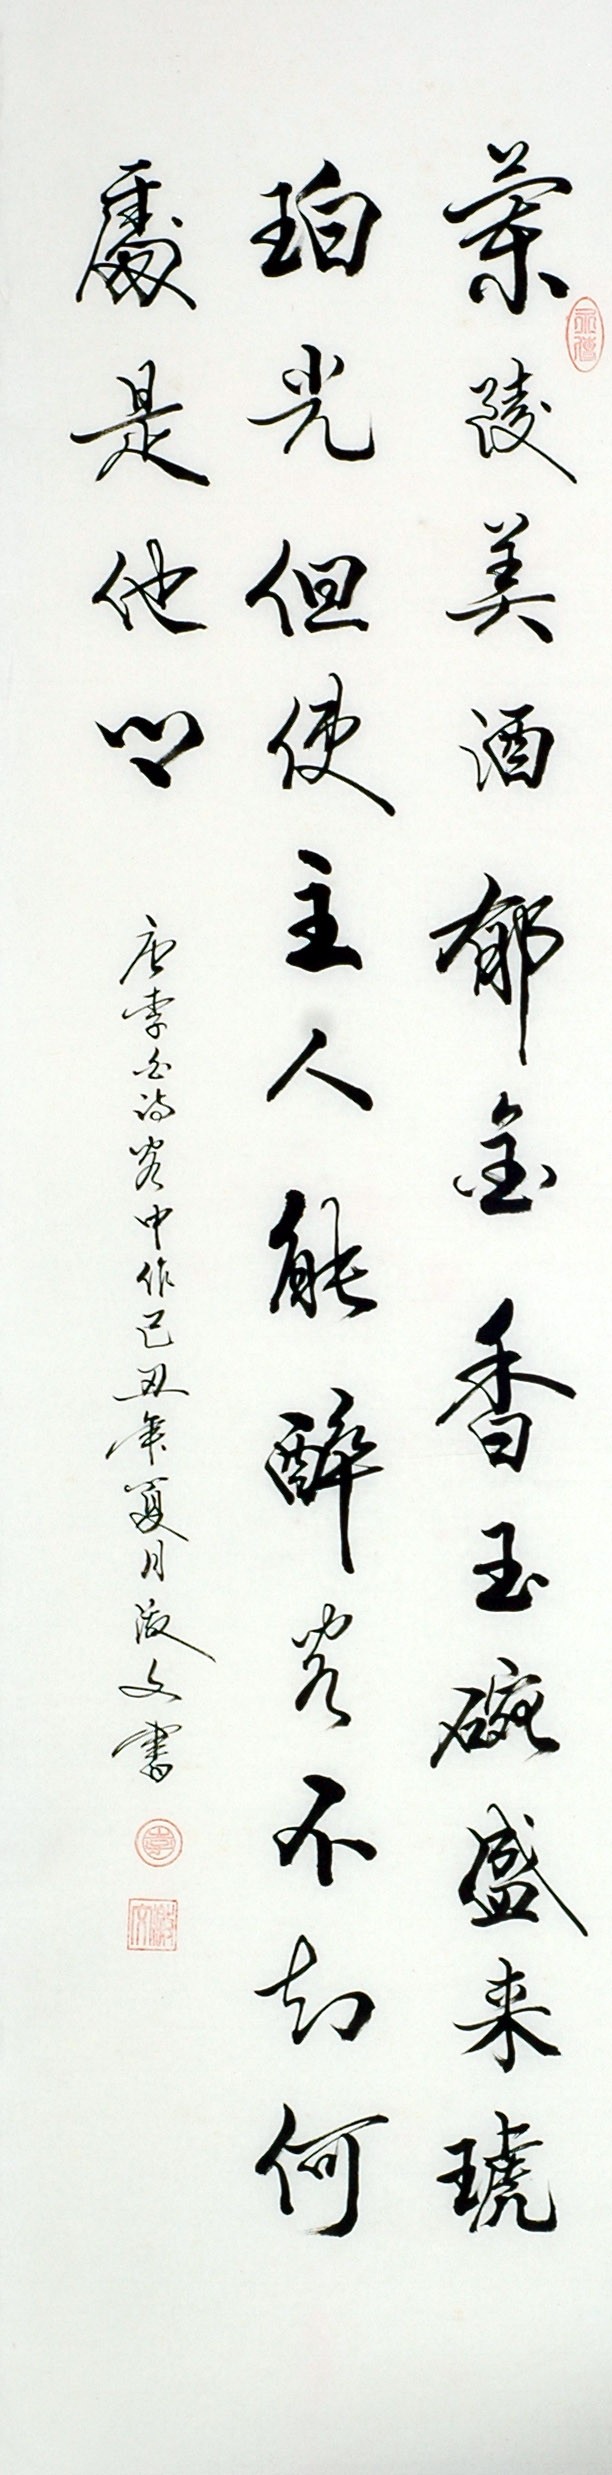 蘭陵美酒郁金香玉碗盛来琥
珀光但使主人能醉客不知何
處是他鄉
唐李白诗客中作己丑年夏月文書
李